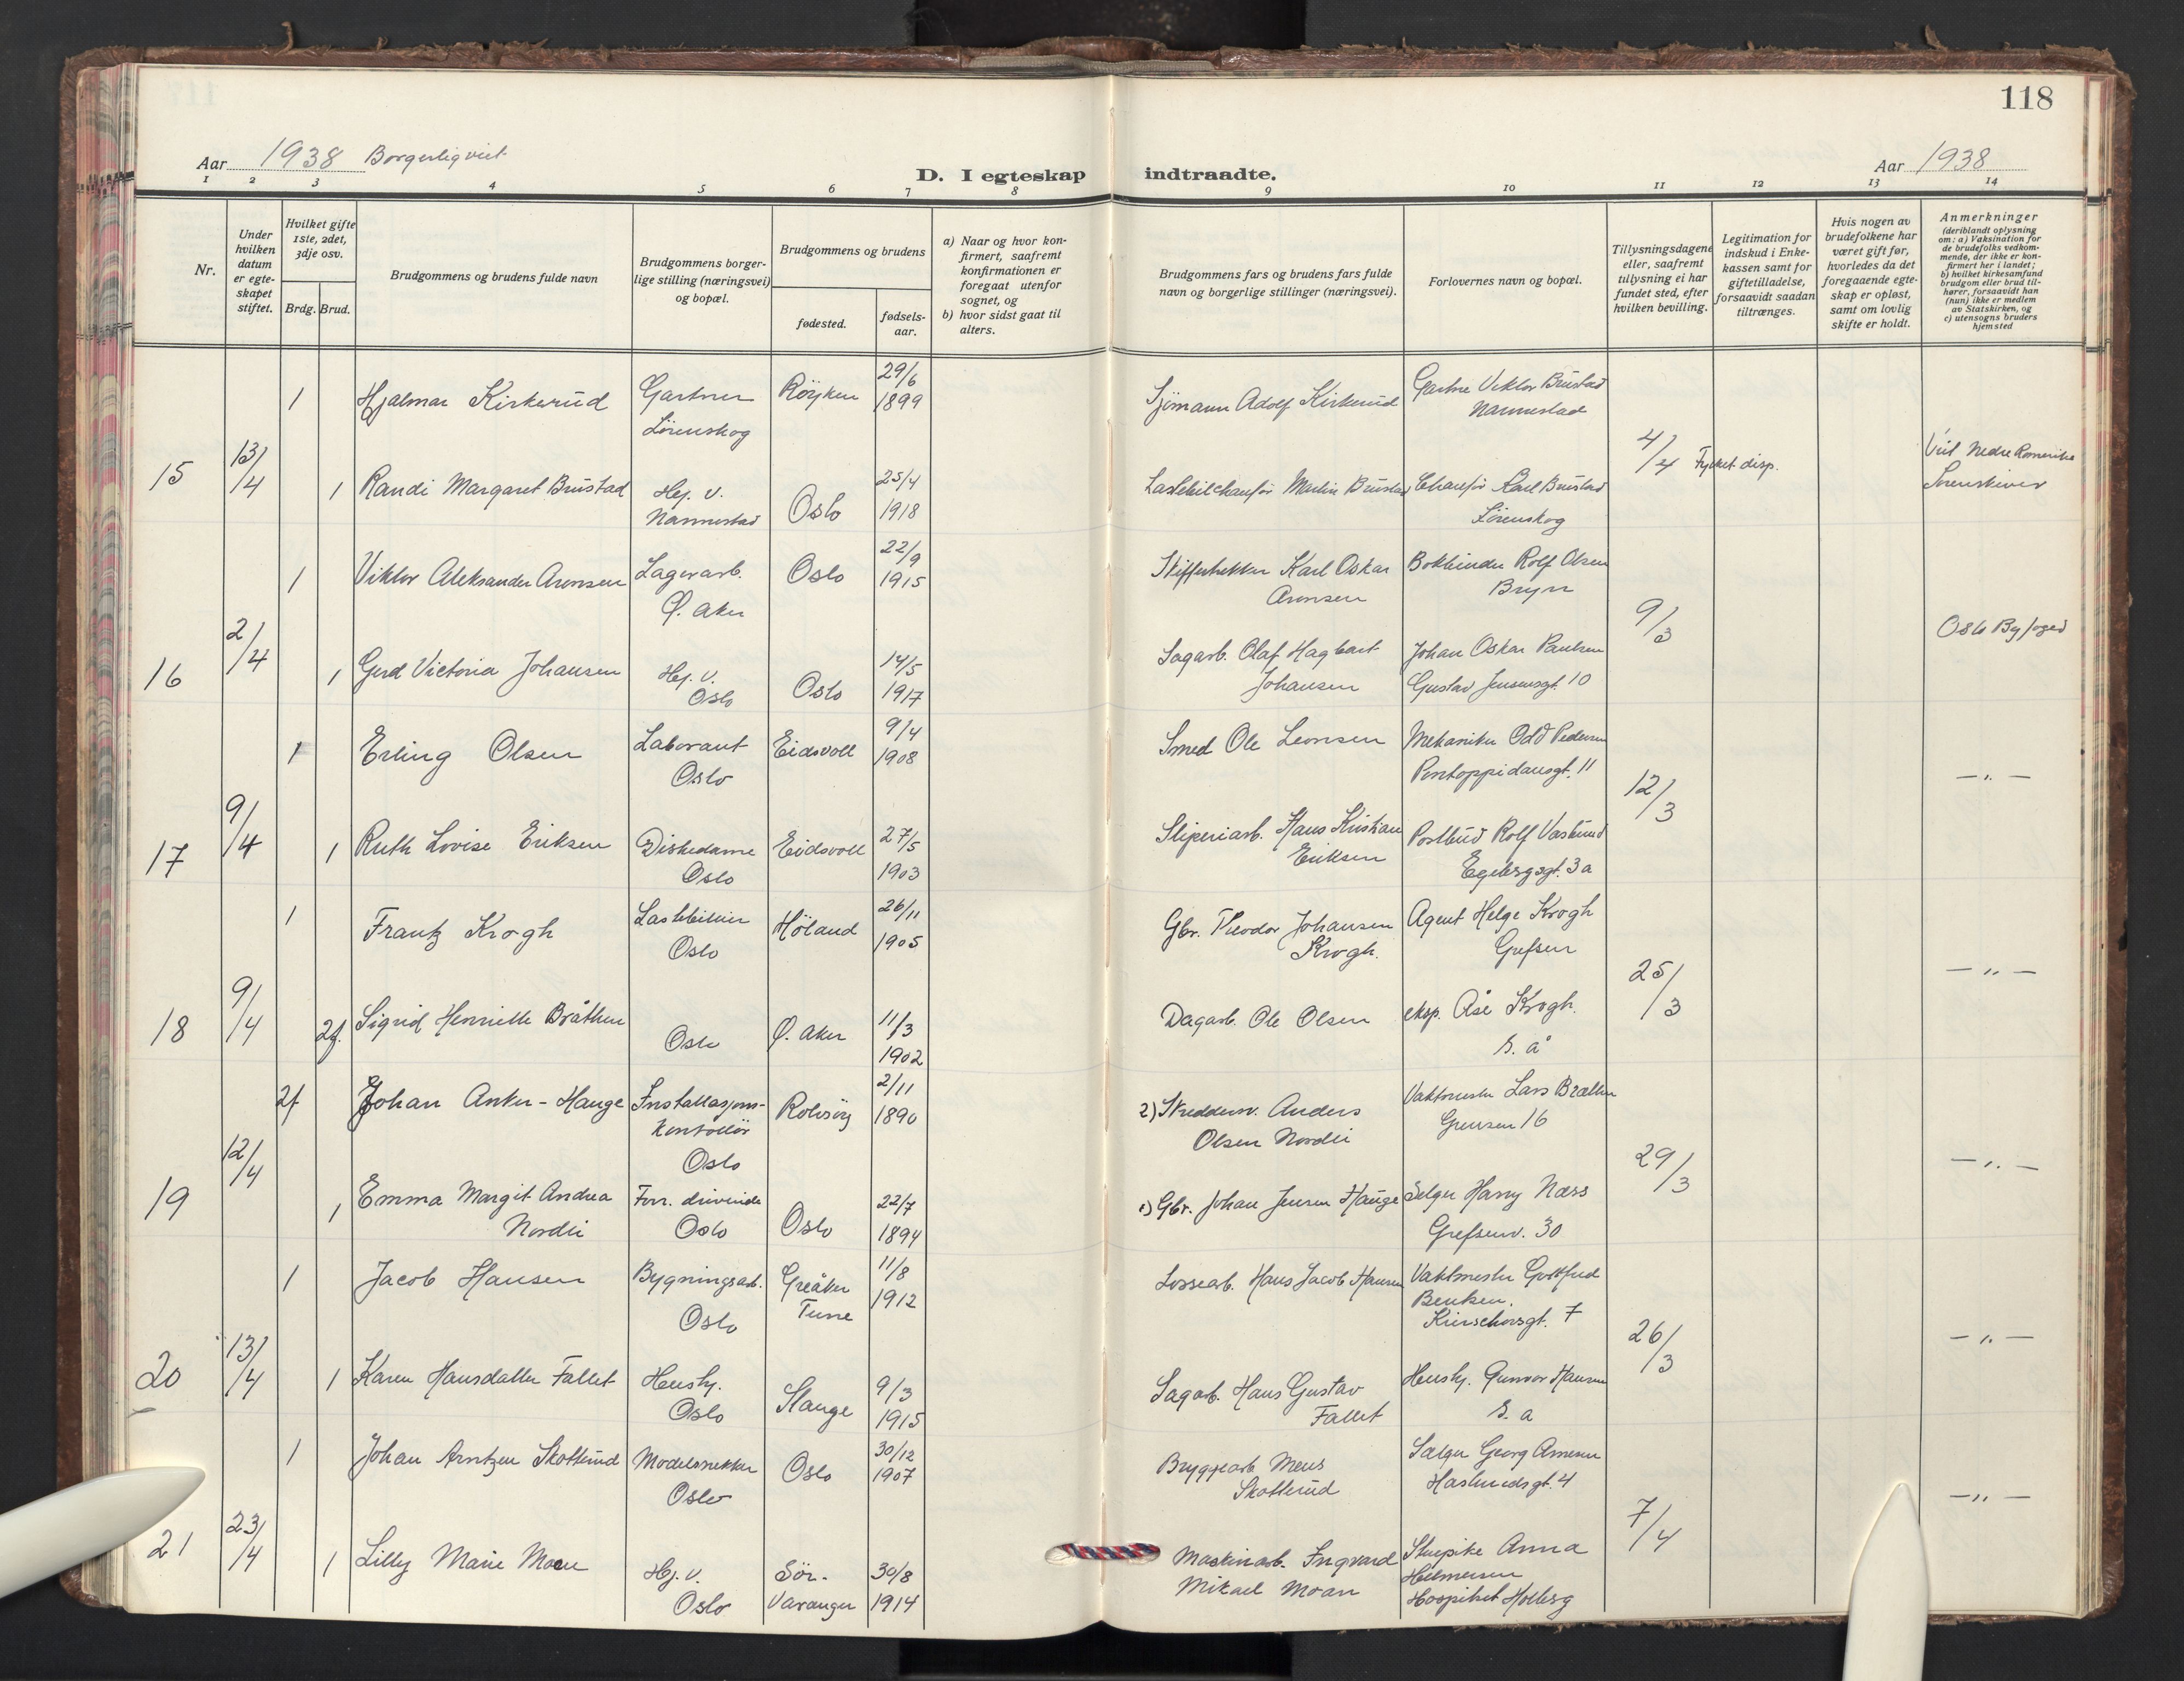 118
Aar 1938 Borgerlig viet
D. I egteskap indtraadte.
Aar 1938
1 2 3 4 5 6 7 8 9 10 11 12 13 14
Nr.
Under hvilken datum er egteskapet stiftet.
Hvilket gifte 1ste, 2det, 3dje osv.
Brdg. Brud.
Brudgommens og brudens fulde navn
Brudgommens borgerlige stilling (næringsvei) og bopæl.
Brudgommens og brudens
fødested.
fødselsaar.
a) Naar og hvor konfirmert, saafremt konfirmationen er foregaat utenfor sognet, og
b) hvor sidst gaat til alters.
Brudgommens fars og brudens fars fulde navn og borgerlige stillinger (næringsvei).
Forlovernes navn og bopæl.
Tillysningsdagene eller, saafremt tillysning ei har fundet sted, efter hvilken bevilling.
Legitimation for indskud i Enkekassen samt for giftetilladelse, forsaavidt saadan tiltrænges.
Hvis nogen av brudefolkene har været gift før, hvorledes da det foregaaende egteskap er opløst, samt om lovlig skifte er holdt.
Anmerkninger (deriblandt oplysning om: a) Vaksination for de brudefolks vedkommende, der ikke er konfirmert her i landet; b) hvilket kirkesamfund brudgom eller brud tilhører, forsaavidt han (hun) ikke er medlem av Statskirken, og c) utensogns bruders hjemsted
1 Hjalmar Kirkerud Gartner Lörenskog Röyken 29/6 1899 Sjömann Adolf Kirkerud Viktor Brustad Nannestad
15 13/4 1 Randi Margaret Brustad Hj. v. Nannestad Oslo 25/4 1918 Lastebilchauför Martin Brustad Chauför Karl Brustad Lörenskog 4/4 disp. Nedre Romerike
1 Viktor Aleksander Aronsen Lagerarb. Ö. Aker Oslo 22/9 1915 Karl Oskar Aronsen Bokbinder Rolf Olsen Bryn
16 2/4 1 Gerd Victoria Johansen Hj. v. Oslo Oslo 14/5 1917 Sagarb. Olaf Hagbart Johansen Johan Oskar Paulsen Gustav Jensensgt. 10 9/3 Oslo Byfoged
1 Erling Olsen Laborant Oslo Eidsvoll 9/4 1908 Smed Ole Leonsen Mekaniker Odd Pedersen Pontoppidansgt. 11
17 9/4 1 Ruth Lovise Eriksen Diskedame Oslo Eidsvoll 27/5 1903 Sliperiarb. Hans Kristian Eriksen Postbud Rolf Egebergsgt. 3a 12/3 — " —
1 Frantz Krogh Lastebileier Oslo Höland 26/11 1905 Gbr. Theodor Johansen Krogh. Agent Helge Krogh Grefsen
18 9/4 2g. Sigrid Henriette Bråthen Oslo Ö. Aker 11/3 1902 Dagarb. Ole Olsen eksp. Åse Krogh. s. å 25/3 — " —
2g Johan Anker-Hauge Installasjonskontrollör Oslo Rolvsöy 2/11 1890 2) Anders Olsen Nordli Vaktmester Lars Bråthen Grensen 16
19 12/4 1 Emma Margit Andrea Nordli Forr. drivende Oslo Oslo 22/7 1894 1) Gbr. Johan Jensen Hauge Selger Harry Næss Grefsenv. 30 29/3 — " —
1 Jacob Hansen Bygningsarb. Oslo Greåker Tune 11/8 1912 Lossearb. Hans Jacob Hansen Vaktmester Gottfred 7
20 13/4 1 Karen Hansdatter Fallet Hushj. Oslo Stange 9/3 1915 Sagarb. Hans Gustav Fallet Hushj. Gunvor Hansen s. a 26/3 — " —
1 Johan Arntzen Skotterud Modelsnekker Oslo Oslo 30/12 1907 Bryggearb Skotterud Selger Georg Arnesen 4
21 23/4 1 Lilly Marie Moen Hj. v. Oslo Sör-Varanger 30/8 1914 Maskinarb. Ingvard Mikael Moan Stuepike Anna Hospitset Holberg 7/4 — " —